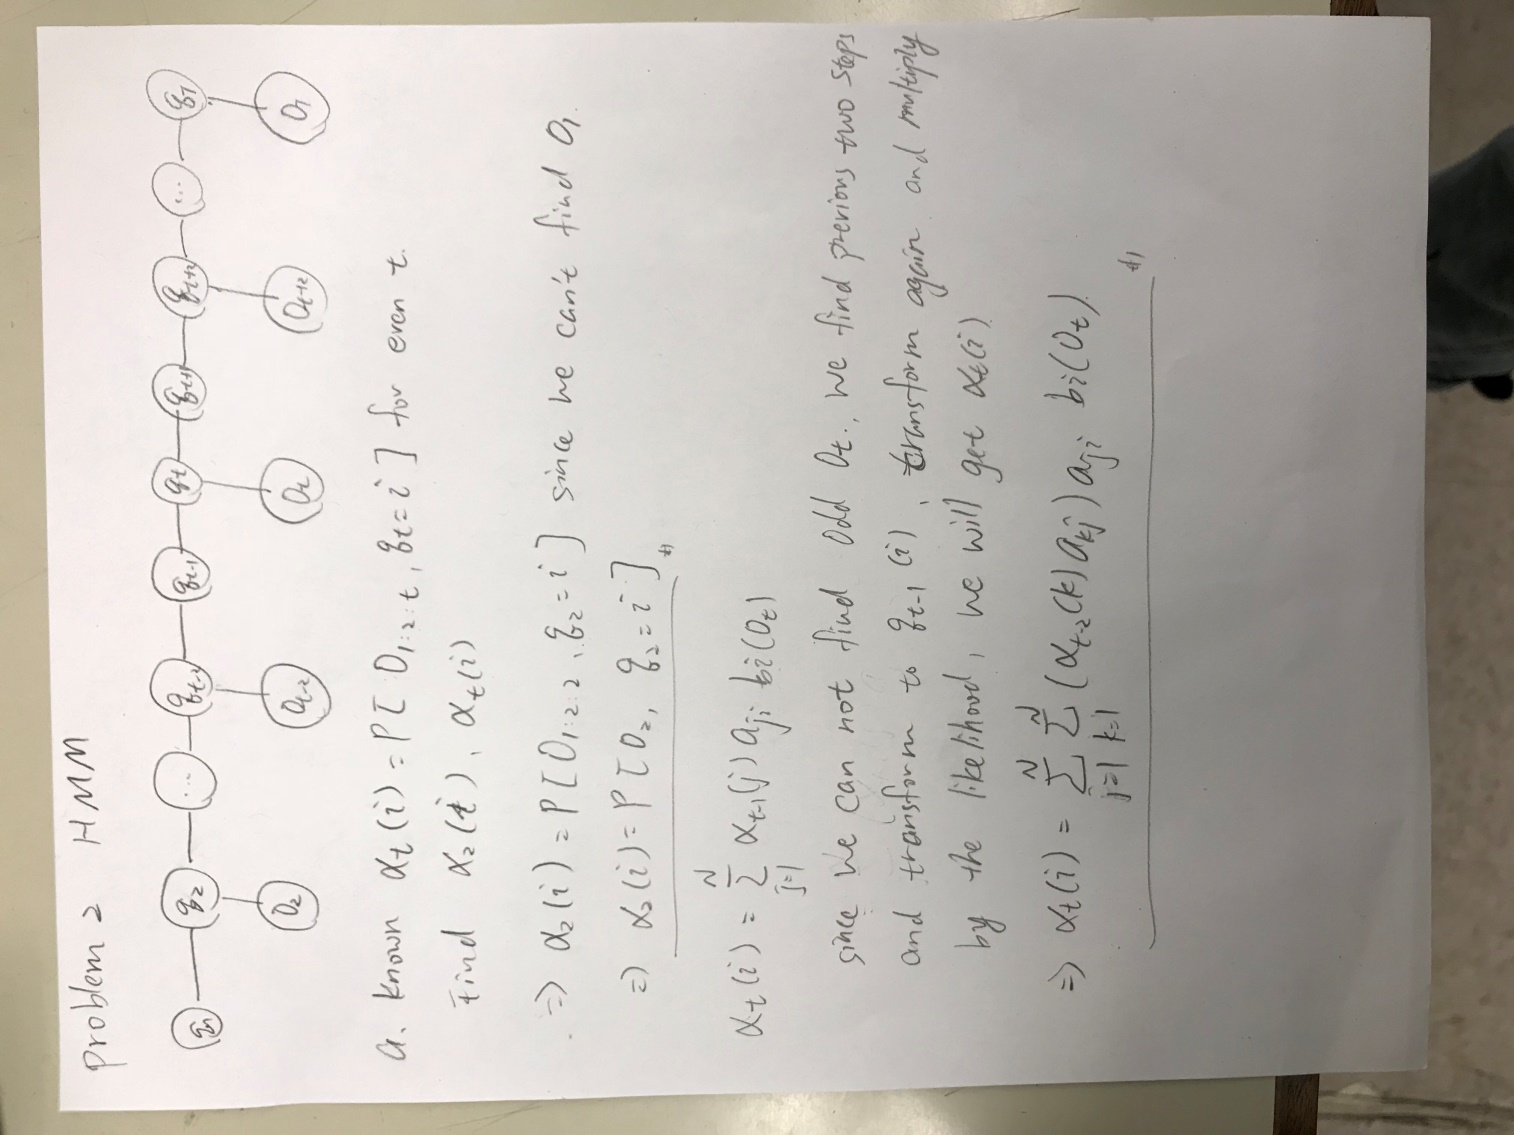 Problem 2 HMM
q1 q2 ... qt-2 qt-1 qt qt+1 qt+2 ... qT
O2 Ot-2 Ot Ot+2 OT
a. known αt(i) = P[O1:2:t, qt=i] for even t.
Find α2(i), αt(i)
⇒ α2(i) = P[O1:2:2, q2=i] since we can't find O1.
⇒ α2(i) = P[O2, q2=i]
αt(i) = Σ_{j=1}^{N} αt-1(j) aji bi(Ot)
since we can not find odd Ot, we find previous two steps
and transform to qt-1(i), transform again and multiply
by the likelihood, we will get αt(i).
⇒ αt(i) = Σ_{j=1}^{N} Σ_{k=1}^{N} (αt-2(k) akj) aji bi(Ot)